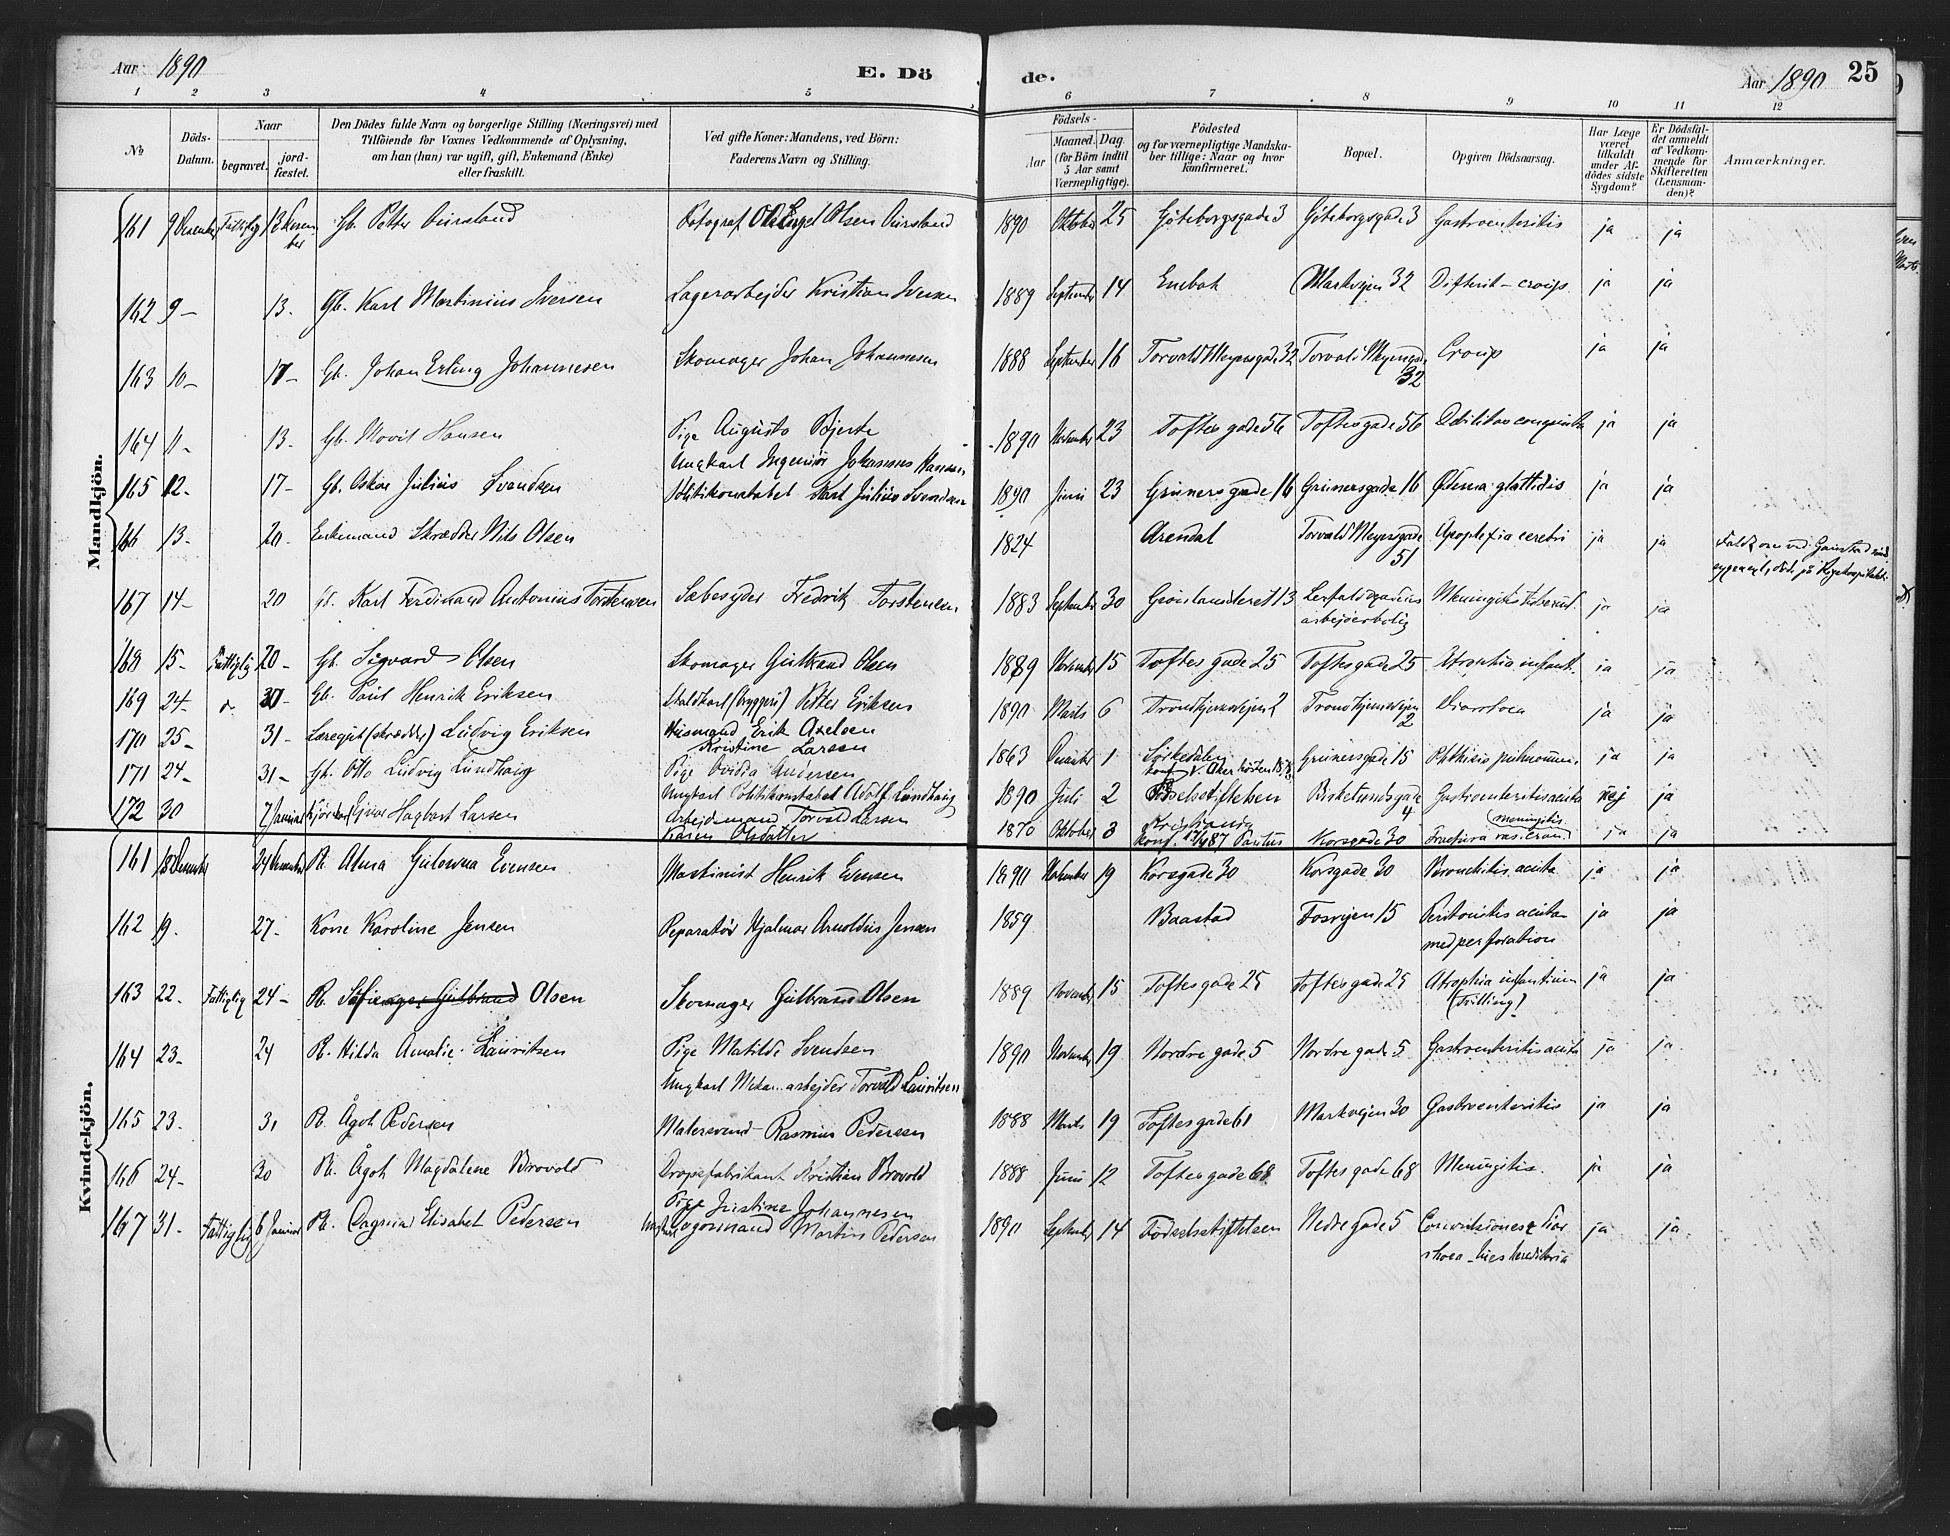 Aar 1890
E. Dö
de.
Aar 1890
25
1 2 3 4 5 6 7 8 9 10 11 12
№
Döds-
Datum.
Naar
begravet.
jord-
fæstet.
Den Dödes fulde Navn og borgerlige Stilling (Næringsvei) med
Tilföiende for Voxnes Vedkommende af Oplysning,
om han (hun) var ugift, gift, Enkemand (Enke)
eller fraskilt.
Ved gifte Koner: Mandens, ved Börn:
Faderens Navn og Stilling.
Födsels-
Aar
Maaned.
Dag.
(for Börn indtil
5 Aar samt
Værnepligtige).
Födested
og for værnepligtige Mandska-
ber tillige: Naar og hvor
konfirmeret.
Bopæl.
Opgiven Dödsaarsag.
Har Læge
været
tilkaldt
under Af-
dödes sidste
Sygdom?
Er Dödsfal-
det anmeldt
af Vedkom-
mende for
Skifteretten
(Lensman-
den)?
Anmærkninger.
Mandkjön.
161 9 Desember Fattiglig 13 Desem-
ber Gb. Petter Aursland Fotograf Ole Engel Olsen Aursland 1890 Oktober 25 Göteborgsgade 3 Göteborgsgade 3 Gastroenteritis ja ja
162 9 - 13. Gb. Karl Martinius Iversen Lagerarbejder Kristian Iversen 1889 September 14 Enebak Markvejen 32 Difterit - croup ja ja
163 10 - 17 - Gb. Johan Erling Johannesen Skomager Johan Johannesen 1888 September 16 Torvald Meyersgade 32 Torvald Meyersgade
32 Croup ja ja
164 11 - 13 - Gb. Hansen Pige Augusta Bjerke
Ungkarl Ingeniör Johannes Hansen 1890 November 23 Toftesgade 56 Toftesgade 56 Debilitas congenita ja ja
165 12. 17 - Gb. Oskar Julius Svendsen Politikonstabel Karl Julius Svendsen 1890 Juni 23 Grünersgade 16 Grünersgade 16 Ødema glottidis ja ja
166 13. 20 - Enkemand Skrædder Nils Olsen 1824 Arendal Torvald Meyersgade
51 Apoplexia cerebri ja ja
167 14 - 20 Gb. Karl Ferdinand Antonius Torstensen Sæbesyder Fredrik Torstensen 1883 September 30 Grønlandsleret 13
arbejderbolig Meningitis tubercul. ja ja
168 15 - Fattiglig 20 - Gb. Sigvard Olsen Skomager Gulbrand Olsen 1889 November 15 Toftes gade 25 Toftesgade 25 Atrophia infant. ja ja
169 24 - 30 - Gb. Paul Henrik Eriksen Staldkarl (bryggeri) Petter Eriksen 1890 Marts 6 Trondhjemsvejen 2 Trondhjemsvejen
2 Diarrhoea ja ja
170 25 - 31 - Læregut (skrædder) Ludvig Eriksen Husmand Erik Axelsen
Kristine Larsen 1863 1 Sørkedalen Grünersgade 15 Phthisis pulmonum ja ja
171 24 - 31 - Gb. Otto Ludvig Lundhaug Pige Ovidia Andersen
Ungkarl Politikonstabel Adolf Lundhaug 1890 Juli 2 Fødselsstiftelsen Birkelundsgade
4 Gastroenteritis acuta nej ja
172 30 7 Januar Einar Hagbart Larsen Arbejdsmand Torvald Larsen
Karen Olsdatter 1870 Oktober 3 Kristiania
Konf. 1887 Paulus Korsgade 30 (meningitis) Fractura cran. ja ja
Kvindekjön.
161 18 Desember 24 Desember P. Alma Gulowna Evensen Maskinist Henrik Evensen 1890 November 19 Korsgade 30 Korsgade 30 Bronchitis acuta ja ja
162 19. 27 - Kone Karoline Jensen Reparatør Hjalmar Arnoldus Jensen 1859 Baastad Fosvejen 15 Peritonitis acuta
med perforation ja ja
163 22 - Fattiglig 24 - P. Olsen Skomager Gulbrand Olsen 1889 November 15 Toftesgade 25 Toftesgade 25 Atrophia infantium
(Tvilling) ja ja
164 23 - 24 P. Hilda Amalie Lauritsen Pige Matilde Svendsen
Ungkarl Mekan. arbejder Torvald Lauritsen 1890 November 19 Nordre gade 5 Nordre gade 5 Gastroenteritis acuta ja ja
165 23 - 31 P. Ågot Pedersen Malersvend Rasmus Pedersen 1888 Marts 19 Toftesgade 61 Markvejen 30 Gastroenteritis ja ja
166 24 - 30 P. Ågot Magdalene Brovold Dropsfabrikant Kristian Brovold 1888 Juni 12 Toftesgade 68 Toftesgade 68 Meningitis. ja ja
167 31 - Fattiglig 6 Januar P. Dagmar Elisabet Pedersen Pige Justine Johannesen
Ungkarl Martin Pedersen 1890 September 14 Fødselsstiftelsen Nedre gade 5 Convulsiones & diar-
rhoea - lues hereditaria ja ja